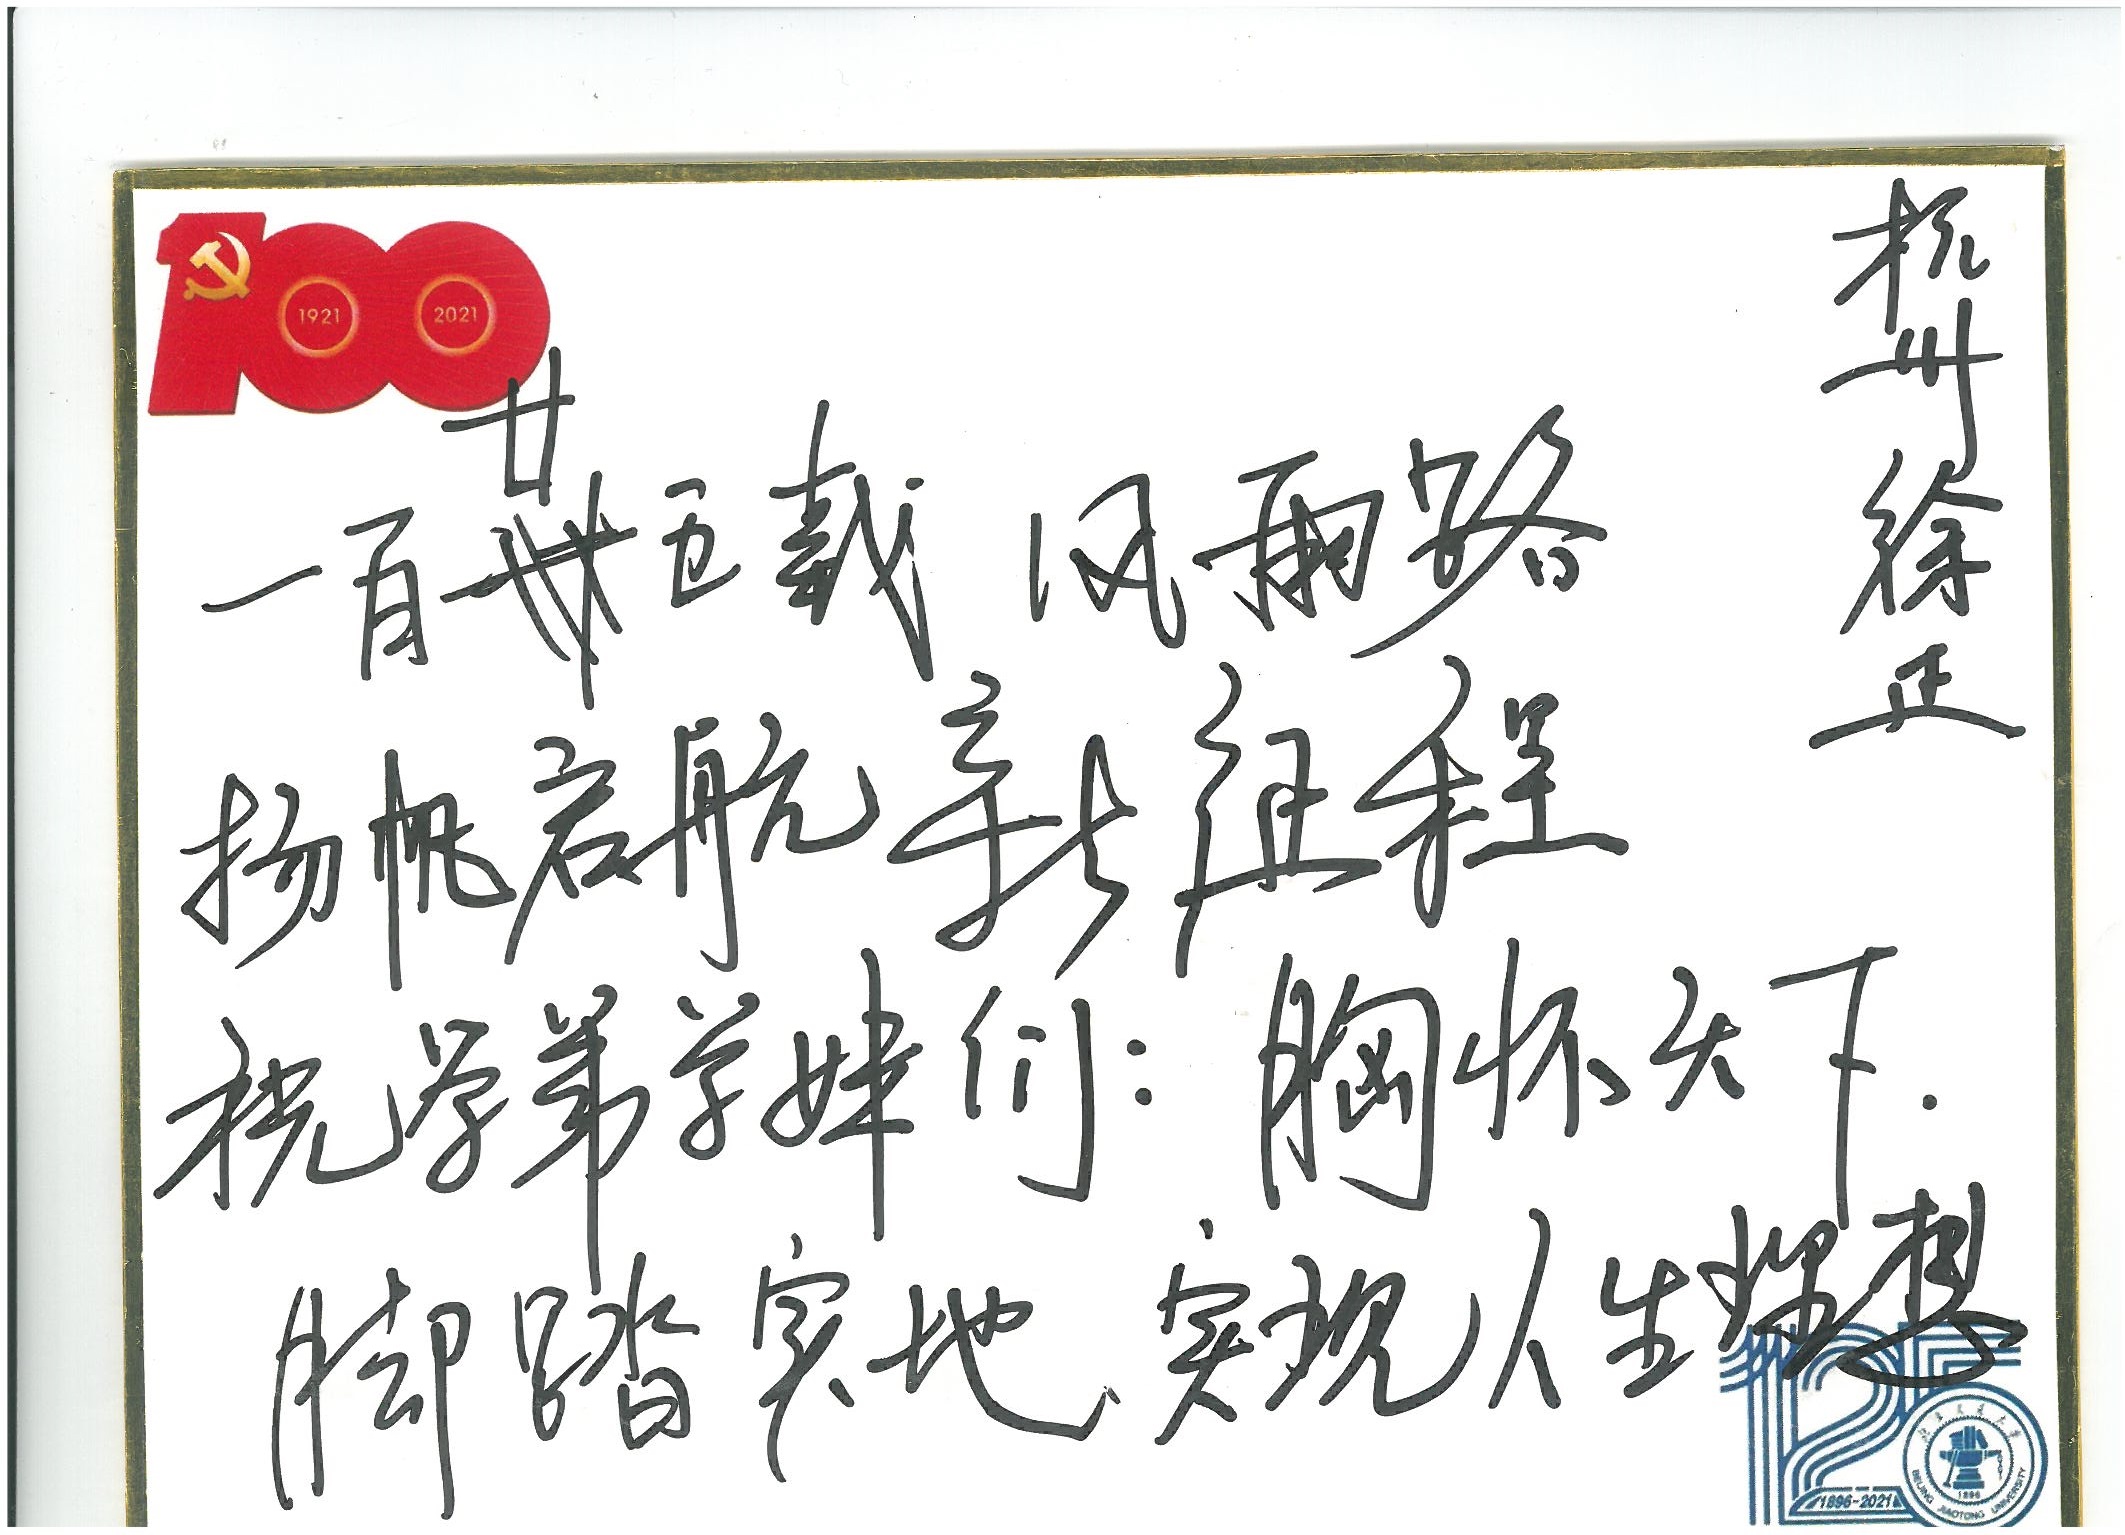 1921 2021
一百廿五载 风雨路
扬帆启航新征程
祝学弟学妹们：胸怀天下.
脚踏实地、实现人生理想
杭州徐正
125
1896-2021
北京交通大学
1896
BEIJING JIAOTONG UNIVERSITY